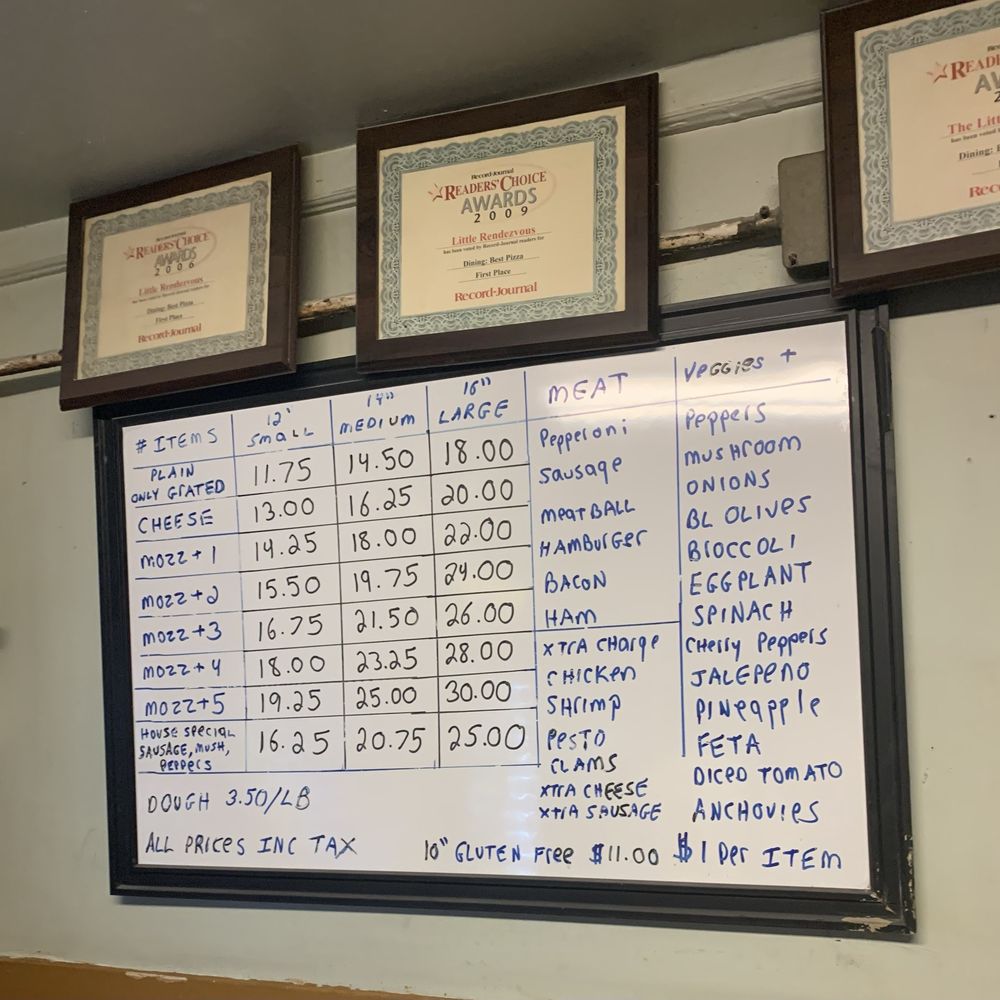 Record-Journal
READERS' CHOICE
AWARDS
2006
Little Rendezvous
has been voted by Record-Journal readers for
Dining: Best Pizza
First Place
Record-Journal
Record-Journal
READERS' CHOICE
AWARDS
2009
Little Rendezvous
has been voted by Record-Journal readers for
Dining: Best Pizza
First Place
Record-Journal
# ITEMS 12" SMALL 14" MEDIUM 16" LARGE
PLAIN ONLY GRATED 11.75 14.50 18.00
CHEESE 13.00 16.25 20.00
MOZZ + 1 14.25 18.00 22.00
MOZZ + 2 15.50 19.75 24.00
MOZZ + 3 16.75 21.50 26.00
MOZZ + 4 18.00 23.25 28.00
MOZZ + 5 19.25 25.00 30.00
HOUSE SPECIAL SAUSAGE, MUSH, PEPPERS 16.25 20.75 25.00
DOUGH 3.50/LB
ALL PRICES INC TAX
MEAT
Pepperoni
Sausage
MEATBALL
HAMBURGER
BACON
HAM
XTRA CHARGE
CHICKEN
SHRIMP
PESTO
CLAMS
XTRA CHEESE
XTRA SAUSAGE
VEGGIES +
Peppers
MUSHROOM
ONIONS
BL OLIVES
BROCCOLI
EGGPLANT
SPINACH
CHERRY PEPPERS
JALEPENO
PINEAPPLE
FETA
DICED TOMATO
ANCHOVIES
10" GLUTEN FREE $11.00 $1 PER ITEM